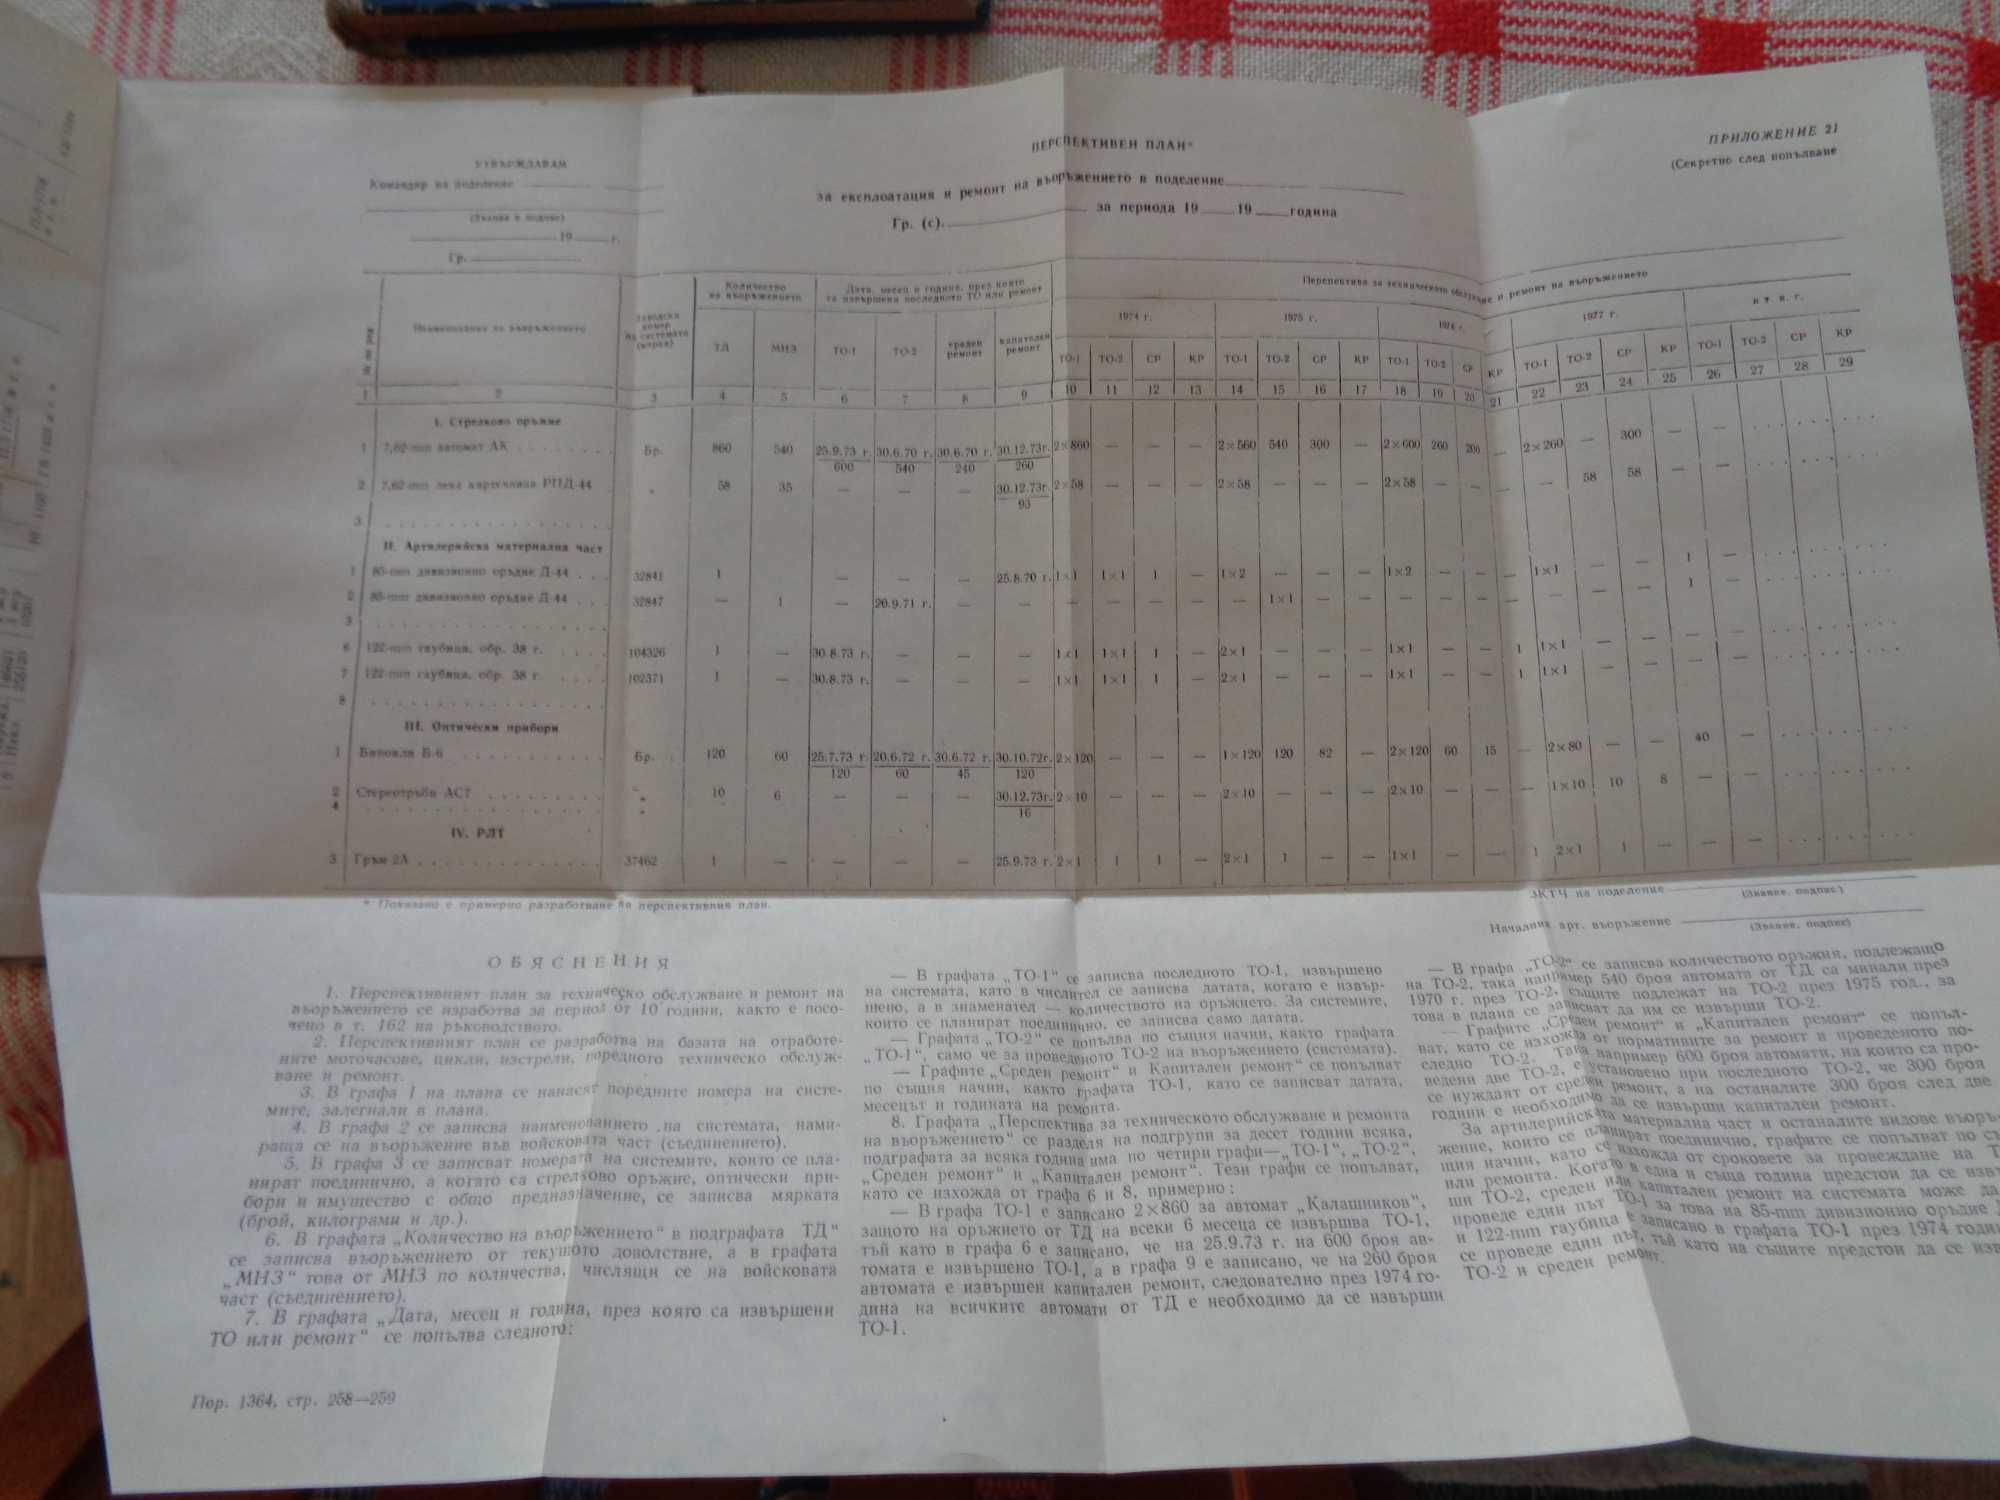 ПРИЛОЖЕНИЕ 21
(Секретно след попълване
УТВЪРЖДАВАМ
Командир на поделение
(Звание и подпис)
19 г.
Гр.
ПЕРСПЕКТИВЕН ПЛАН*
за експлоатация и ремонт на въоръжението в поделение
Гр. (с). за периода 19 19 година
№ по ред | Наименование на въоръжението | Заводски номер на системата (мярка) | Количество на въоръжението | Дата, месец и година, през която са извършени последното ТО или ремонт | Перспектива за техническото обслужване и ремонт на въоръжението
1974 г. | 1975 г. | 1976 г. | 1977 г. | и т. н. г.
ТД | МНЗ | ТО-1 | ТО-2 | среден ремонт | капитален ремонт | ТО-1 | ТО-2 | СР | КР | ТО-1 | ТО-2 | СР | КР | ТО-1 | ТО-2 | СР | КР | ТО-1 | ТО-2 | СР | КР | ТО-1 | ТО-2 | СР | КР
1 | 2 | 3 | 4 | 5 | 6 | 7 | 8 | 9 | 10 | 11 | 12 | 13 | 14 | 15 | 16 | 17 | 18 | 19 | 20 | 21 | 22 | 23 | 24 | 25 | 26 | 27 | 28 | 29
I. Стрелково оръжие
1 | 7,62-mm автомат АК | Бр. | 860 | 540 | 25.9.73 г. / 600 | 30.6.70 г. / 540 | 30.6.70 г. / 240 | 30.12.73г. / 260 | 2×860 | — | — | — | 2×560 | 540 | 300 | — | 2×600 | 260 | 200 | — | 2×260 | — | 300 | — | —
2 | 7,62-mm лека картечница РПД-44 | „ | 58 | 35 | — | — | — | 30.12.73г. / 93 | 2×58 | — | — | — | 2×58 | — | — | — | 2×58 | — | — | — | — | 58 | 58 | — | —
3
II. Артилерийска материална част
1 | 85-mm дивизионно оръдие Д-44 | 32841 | 1 | — | — | — | 25.8.70 г. | 1×1 | 1×1 | 1 | — | 1×2 | — | — | — | 1×2 | — | — | — | 1×1 | — | — | — | 1 | —
2 | 85-mm дивизионно оръдие Д-44 | 32847 | — | 1 | — | 20.9.71 г. | — | — | — | — | — | — | — | 1×1 | — | — | — | — | — | — | — | — | — | 1 | —
3
6 | 122-mm гаубица, обр. 38 г. | 104326 | 1 | — | 30.8.73 г. | — | — | — | 1×1 | 1×1 | 1 | — | 2×1 | — | — | — | 1×1 | — | — | 1 | 1×1 | — | — | — | —
7 | 122-mm гаубица, обр. 38 г. | 102371 | 1 | — | 30.8.73 г. | — | — | — | 1×1 | 1×1 | 1 | — | 2×1 | — | — | — | 1×1 | — | — | 1 | 1×1 | — | — | — | —
8
III. Оптически прибори
1 | Бинокли Б-6 | Бр. | 120 | 60 | 25.7.73 г. / 120 | 20.6.72 г. / 60 | 30.6.72 г. / 45 | 30.10.72г. / 120 | 2×120 | — | — | — | 1×120 | 120 | 82 | — | 2×120 | 60 | 15 | — | 2×80 | — | — | 40 | —
2 | Стереотръби АСТ | „ | 10 | 6 | — | — | — | 30.12.73г. / 16 | 2×10 | — | — | — | 2×10 | — | — | — | 2×10 | — | — | — | 1×10 | 10 | 8 | — | —
4 | „
IV. РЛТ
3 | Гръм-2А | 37462 | 1 | — | — | — | — | 25.9.73 г. | 2×1 | 1 | 1 | — | 2×1 | 1 | — | — | 1×1 | — | — | 1 | 2×1 | 1 | — | — | —
* Показано е примерно разработване на перспективния план.
ЗКТЧ на поделение
(Звание, подпис)
Началник арт. въоръжение
(Звание, подпис)
ОБЯСНЕНИЯ
1. Перспективният план за техническо обслужване и ремонт на
въоръжението се изработва за период от 10 години, както е посо-
чено в т. 162 на ръководството.
2. Перспективният план се разработва на базата на отработе-
ните моточасове, цикли, изстрели, поредното техническо обслуж-
ване и ремонт.
3. В графа 1 на плана се нанасят поредните номера на систе-
мите, залегнали в плана.
4. В графа 2 се записва наименованието на системата, нами-
раща се на въоръжение във войсковата част (съединението).
5. В графа 3 се записват номерата на системите, които се пла-
нират поединично, а когато са стрелково оръжие, оптически при-
бори и имущество с общо предназначение, се записва мярката
(брой, килограми и др.).
6. В графата „Количество на въоръжението“ в подграфата ТД“
се записва въоръжението от текущото доволствие, а в графата
„МНЗ“ това от МНЗ по количества, числящи се на войсковата
част (съединението).
7. В графата „Дата, месец и година, през която са извършени
ТО или ремонт“ се попълва следното:
Пор. 1364, стр. 258—259
— В графата „ТО-1“ се записва последното ТО-1, извършено
на системата, като в числител се записва датата, когато е извър-
шено, а в знаменател — количеството на оръжието. За системите,
които се планират поединично, се записва само датата.
— Графата „ТО-2“ се попълва по същия начин, както графата
„ТО-1“, само че за проведеното ТО-2 на въоръжението (системата).
— Графите „Среден ремонт“ и Капитален ремонт“ се попълват
по същия начин, както графата ТО-1, като се записват датата,
месецът и годината на ремонта.
8. Графата „Перспектива за техническото обслужване и ремонта
на въоръжението“ се разделя на подгрупи за десет години всяка,
подграфата за всяка година има по четири графи—„ТО-1“, „ТО-2“,
„Среден ремонт“ и „Капитален ремонт“. Тези графи се попълват,
като се изхожда от графа 6 и 8, примерно:
— В графа ТО-1 е записано 2×860 за автомат „Калашников“,
защото на оръжието от ТД на всеки 6 месеца се извършва ТО-1,
тъй като в графа 6 е записано, че на 25.9.73 г. на 600 броя ав-
томата е извършено ТО-1, а в графа 9 е записано, че на 260 броя
автомата е извършен капитален ремонт, следователно през 1974 го-
дина на всичките автомати от ТД е необходимо да се извърши
ТО-1.
— В графа „ТО-2“ се записва количеството оръжия, подлежащо
на ТО-2, така например 540 броя автомата от ТД са минали през
1970 г. през ТО-2, същите подлежат на ТО-2 през 1975 год., за
това в плана се записват да им се извърши ТО-2.
— Графите „Среден ремонт“ и „Капитален ремонт“ се попъл-
ват, като се изхожда от нормативите за ремонт и проведеното по-
следно ТО-2. Така например 600 броя автомати, на които са про-
ведени две ТО-2, е установено при последното ТО-2, че 300 броя
се нуждаят от среден ремонт, а на останалите 300 броя след две
години е необходимо да се извърши капитален ремонт.
За артилерийската материална част и останалите видове въоръ-
жение, които се планират поединично, графите се попълват по съ
щия начин, като се изхожда от сроковете за провеждане на Т
или ремонта. Когато в една и съща година предстои да се извъ
ши ТО-2, среден или капитален ремонт на системата може да
проведе един път ТО-1 за това на 85-mm дивизионно оръдие Д
и 122-mm гаубица е записано в графата ТО-1 през 1974 годин
се проведе един път, тъй като на същите предстои да се изв
ТО-2 и среден ремонт.